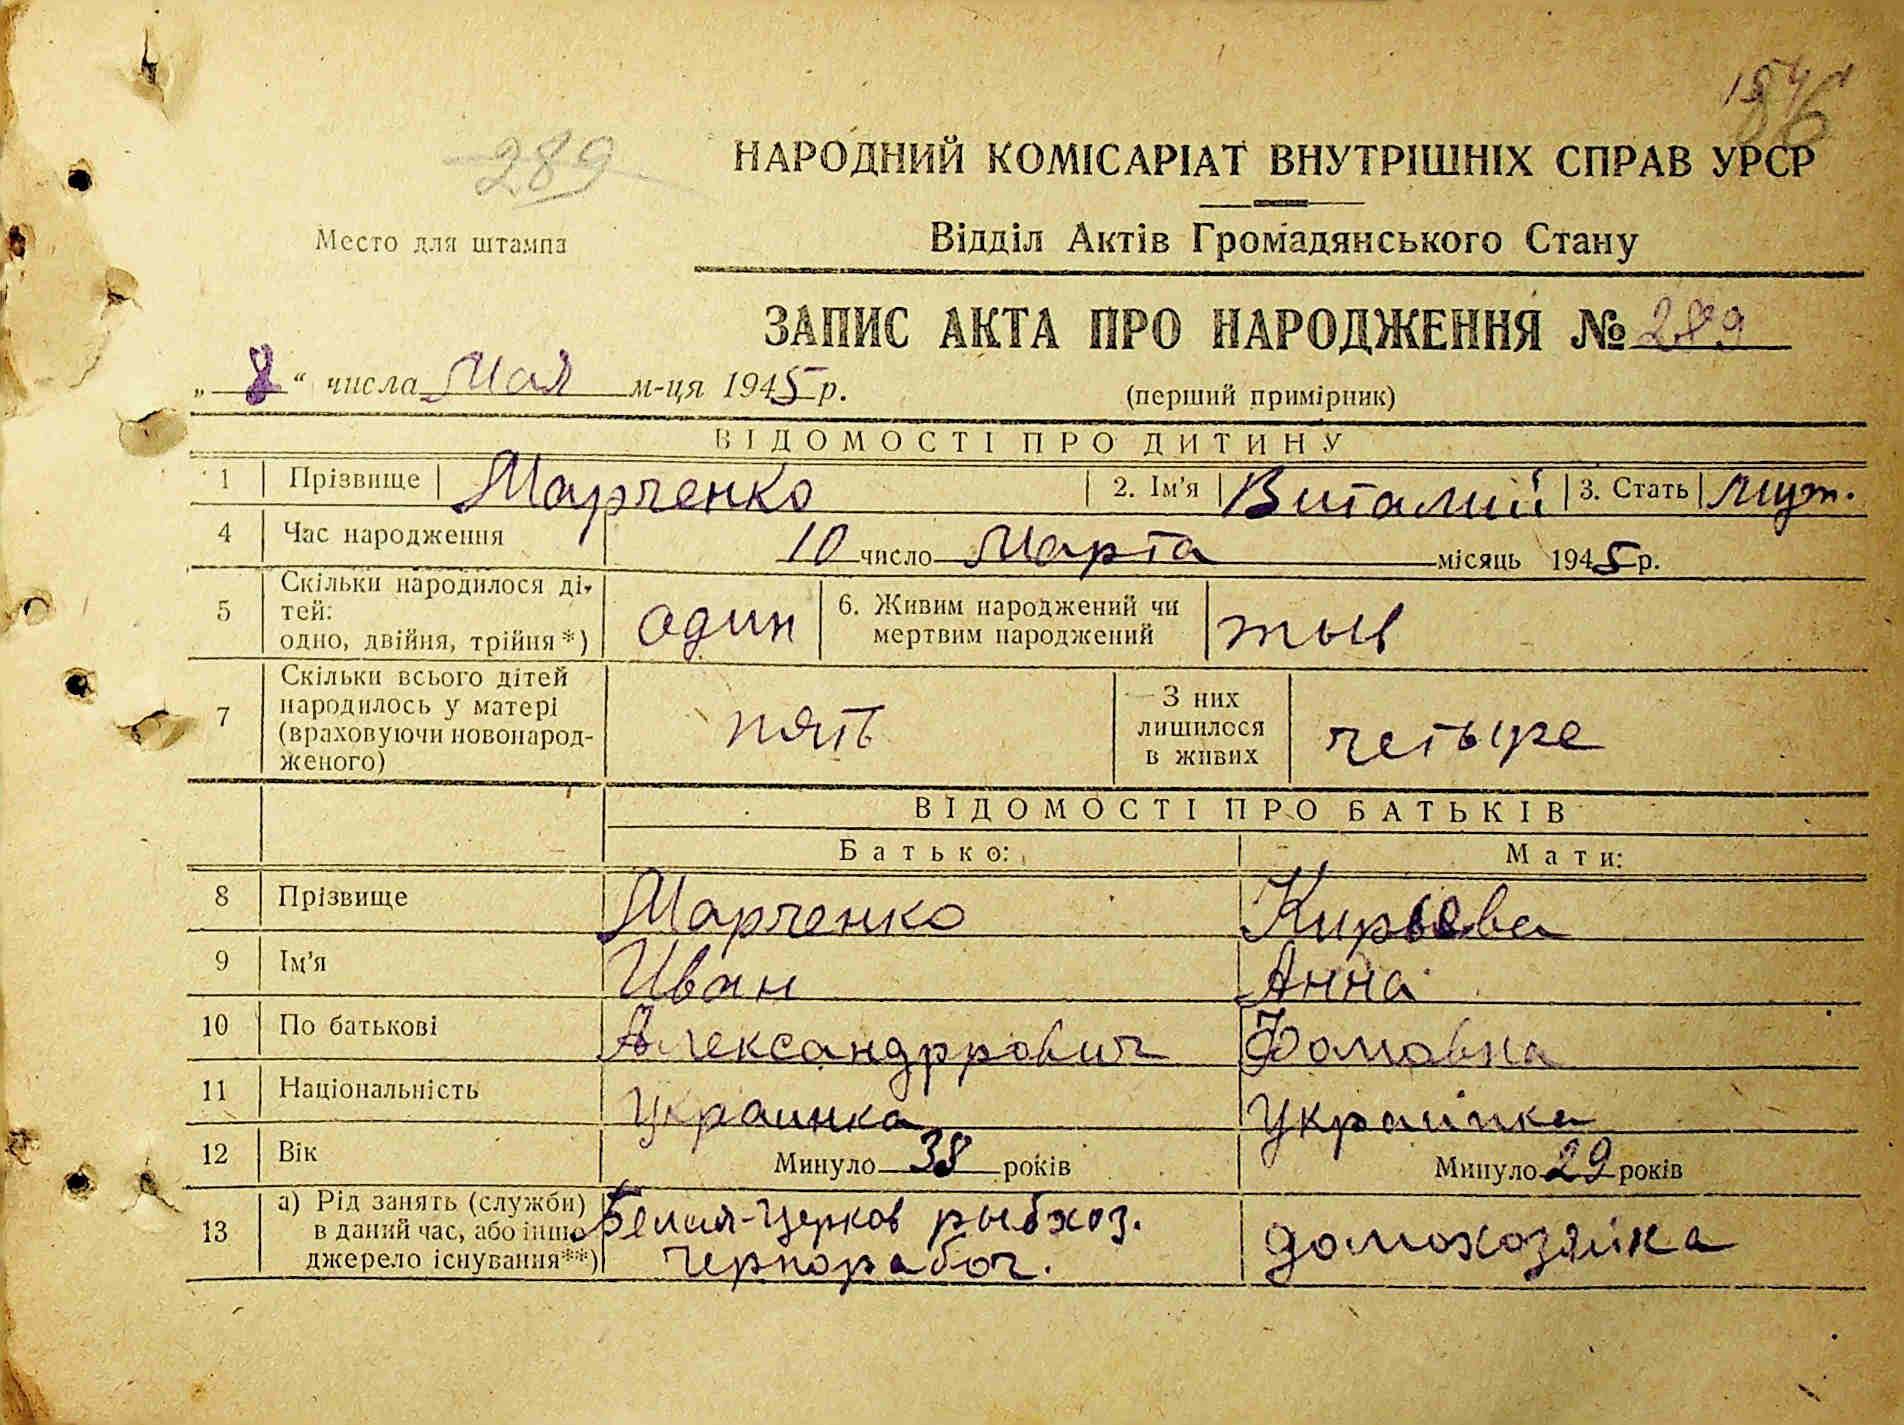 86
289
НАРОДНИЙ КОМІСАРІАТ ВНУТРІШНІХ СПРАВ УРСР
Место для штампа
Відділ Актів Громадянського Стану
ЗАПИС АКТА ПРО НАРОДЖЕННЯ № 289
„ 8 “ числа Мая м-ця 1945 р.
(перший примірник)
ВІДОМОСТІ ПРО ДИТИНУ
1 Прізвище Марченко 2. Ім'я Виталий 3. Стать муж.
4 Час народження 10 число Марта місяць 1945 р.
5 Скільки народилося ді-
тей:
одно, двійня, трійня*) один 6. Живим народжений чи
мертвим народжений жыв
7 Скільки всього дітей
народилось у матері
(враховуючи новонарод-
женого) пять З них
лишилося
в живих четыре
ВІДОМОСТІ ПРО БАТЬКІВ
Батько: Мати:
8 Прізвище Марченко Кирьева
9 Ім'я Иван Анна
10 По батькові Александррович Фомовна
11 Національність Украинка Украінка
12 Вік Минуло 38 років Минуло 29 років
13 а) Рід занять (служби)
в даний час, або інше
джерело існування**) Белая-Церков рыбхоз.
Чернорабоч. домохозяйка